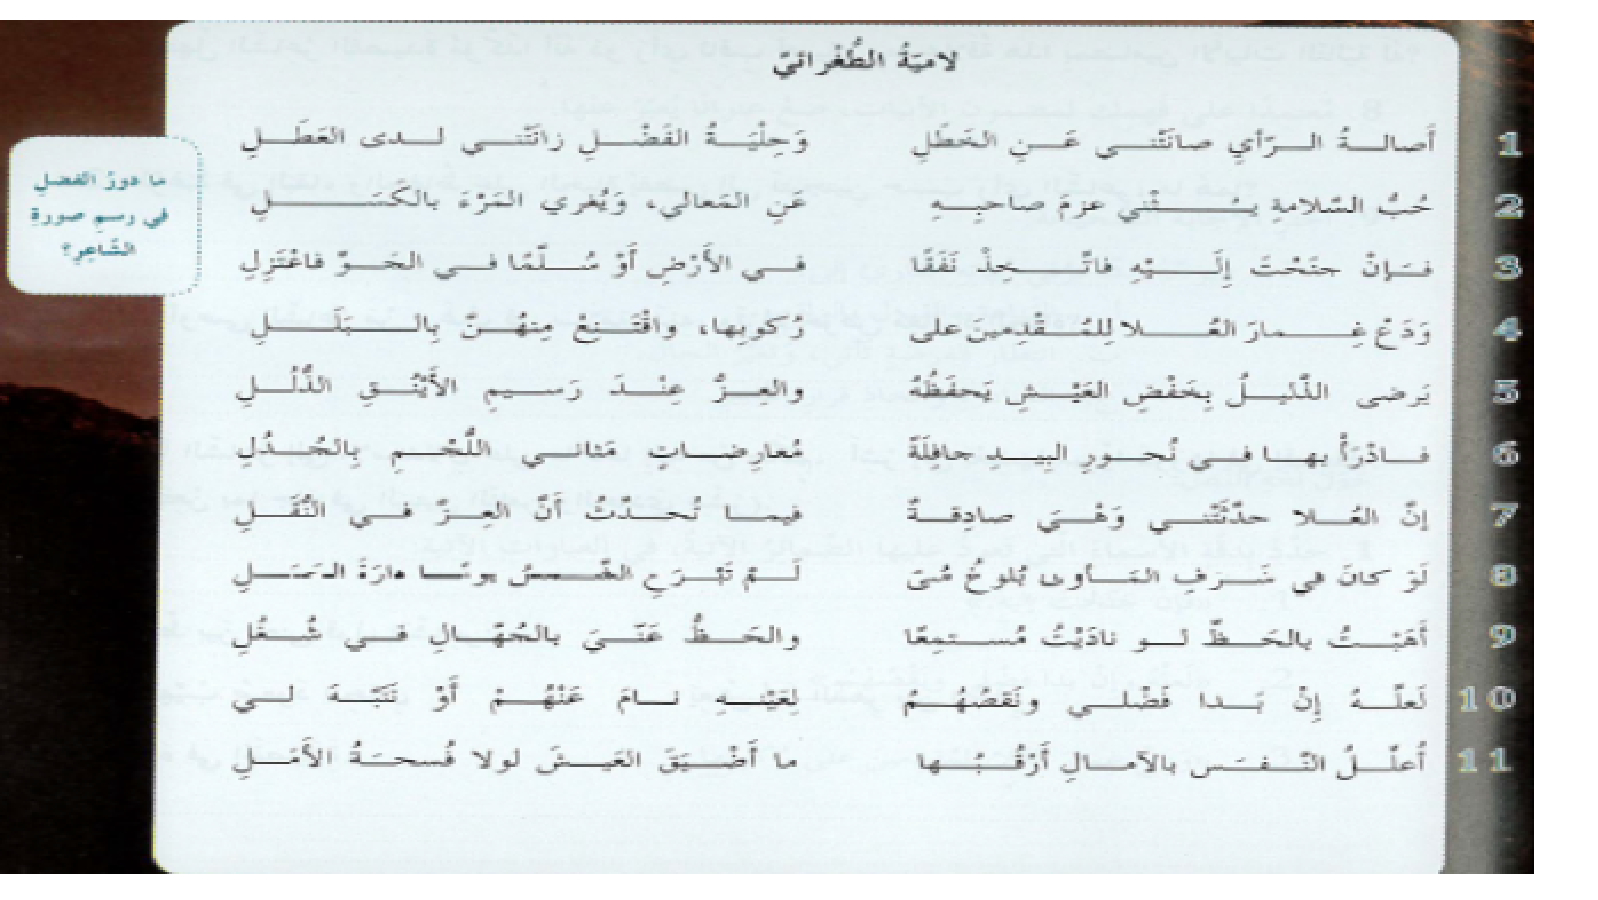 لاميّةُ الطُّغْرائيّ
1 أَصالـةُ الـرّأيِ صانَتْنـي عَـنِ الخَطَلِ وَحِلْيَـةُ الفَضْـلِ زانَتْنـي لـدى العَطَـلِ
2 حُبُّ السّلامةِ يـُـثْني عزمَ صاحبِـهِ عَنِ المَعالي، وَيُغري المَرْءَ بالكَسَـلِ
3 فـإنْ جنَحْتَ إِلَـيْهِ فاتَّـخِذْ نَفَقًا فـي الأَرْضِ أَوْ سُـلّمًا فـي الجَـوِّ فاعْتَزِلِ
4 وَدَعْ غِـمارَ العُـلا لِلمُـقْدِمينَ على رُكوبِها، واقْتَنِعْ مِنهُـنَّ بِالـبَلَـلِ
5 يَرضى الذّليـلُ بِخَفْضِ العَيْـشِ يَحفَظُهُ والعِـزُّ عِنْـدَ رَسـيمِ الأَيْنُـقِ الذُّلُـلِ
6 فـادْرَأْ بهـا فـي نُحـورِ البِيـدِ جافِلَةً مُعارِضـاتٍ مَثانـي اللُّجُـمِ بِالجُـدُلِ
7 إنّ العُـلا حدّثَتْنـي وَهْـيَ صادِقـةٌ فيمـا تُحدّثُ أَنَّ العِـزَّ فـي النُّقَـلِ
8 لَوْ كانَ في شَـرَفِ المَـأوى بُلوغُ مُنًى لَـمْ تَبْـرَحِ الشّـمسُ يومًـا دارَةَ الـحَمَـلِ
9 أَهَبْـتُ بالحَـظِّ لـو نادَيْتُ مُسـتمِعًا والحَـظُّ عَنّـيَ بالجُهّـالِ فـي شُـغُلِ
10 لَعلّـهُ إِنْ بَـدا فَضْلـي ونَقصُهُـمُ لِعَيْنِـهِ نـامَ عَنْهُـمْ أَوْ تَنَبّـهَ لـي
11 أُعلّـلُ النّـفـسَ بالآمـالِ أَرْقُـبُـها ما أَضْيَـقَ العَيـشَ لولا فُسحـةُ الأَمَـلِ
ما دورُ الفضلِ
في رسمِ صورةِ
الشّاعرِ؟